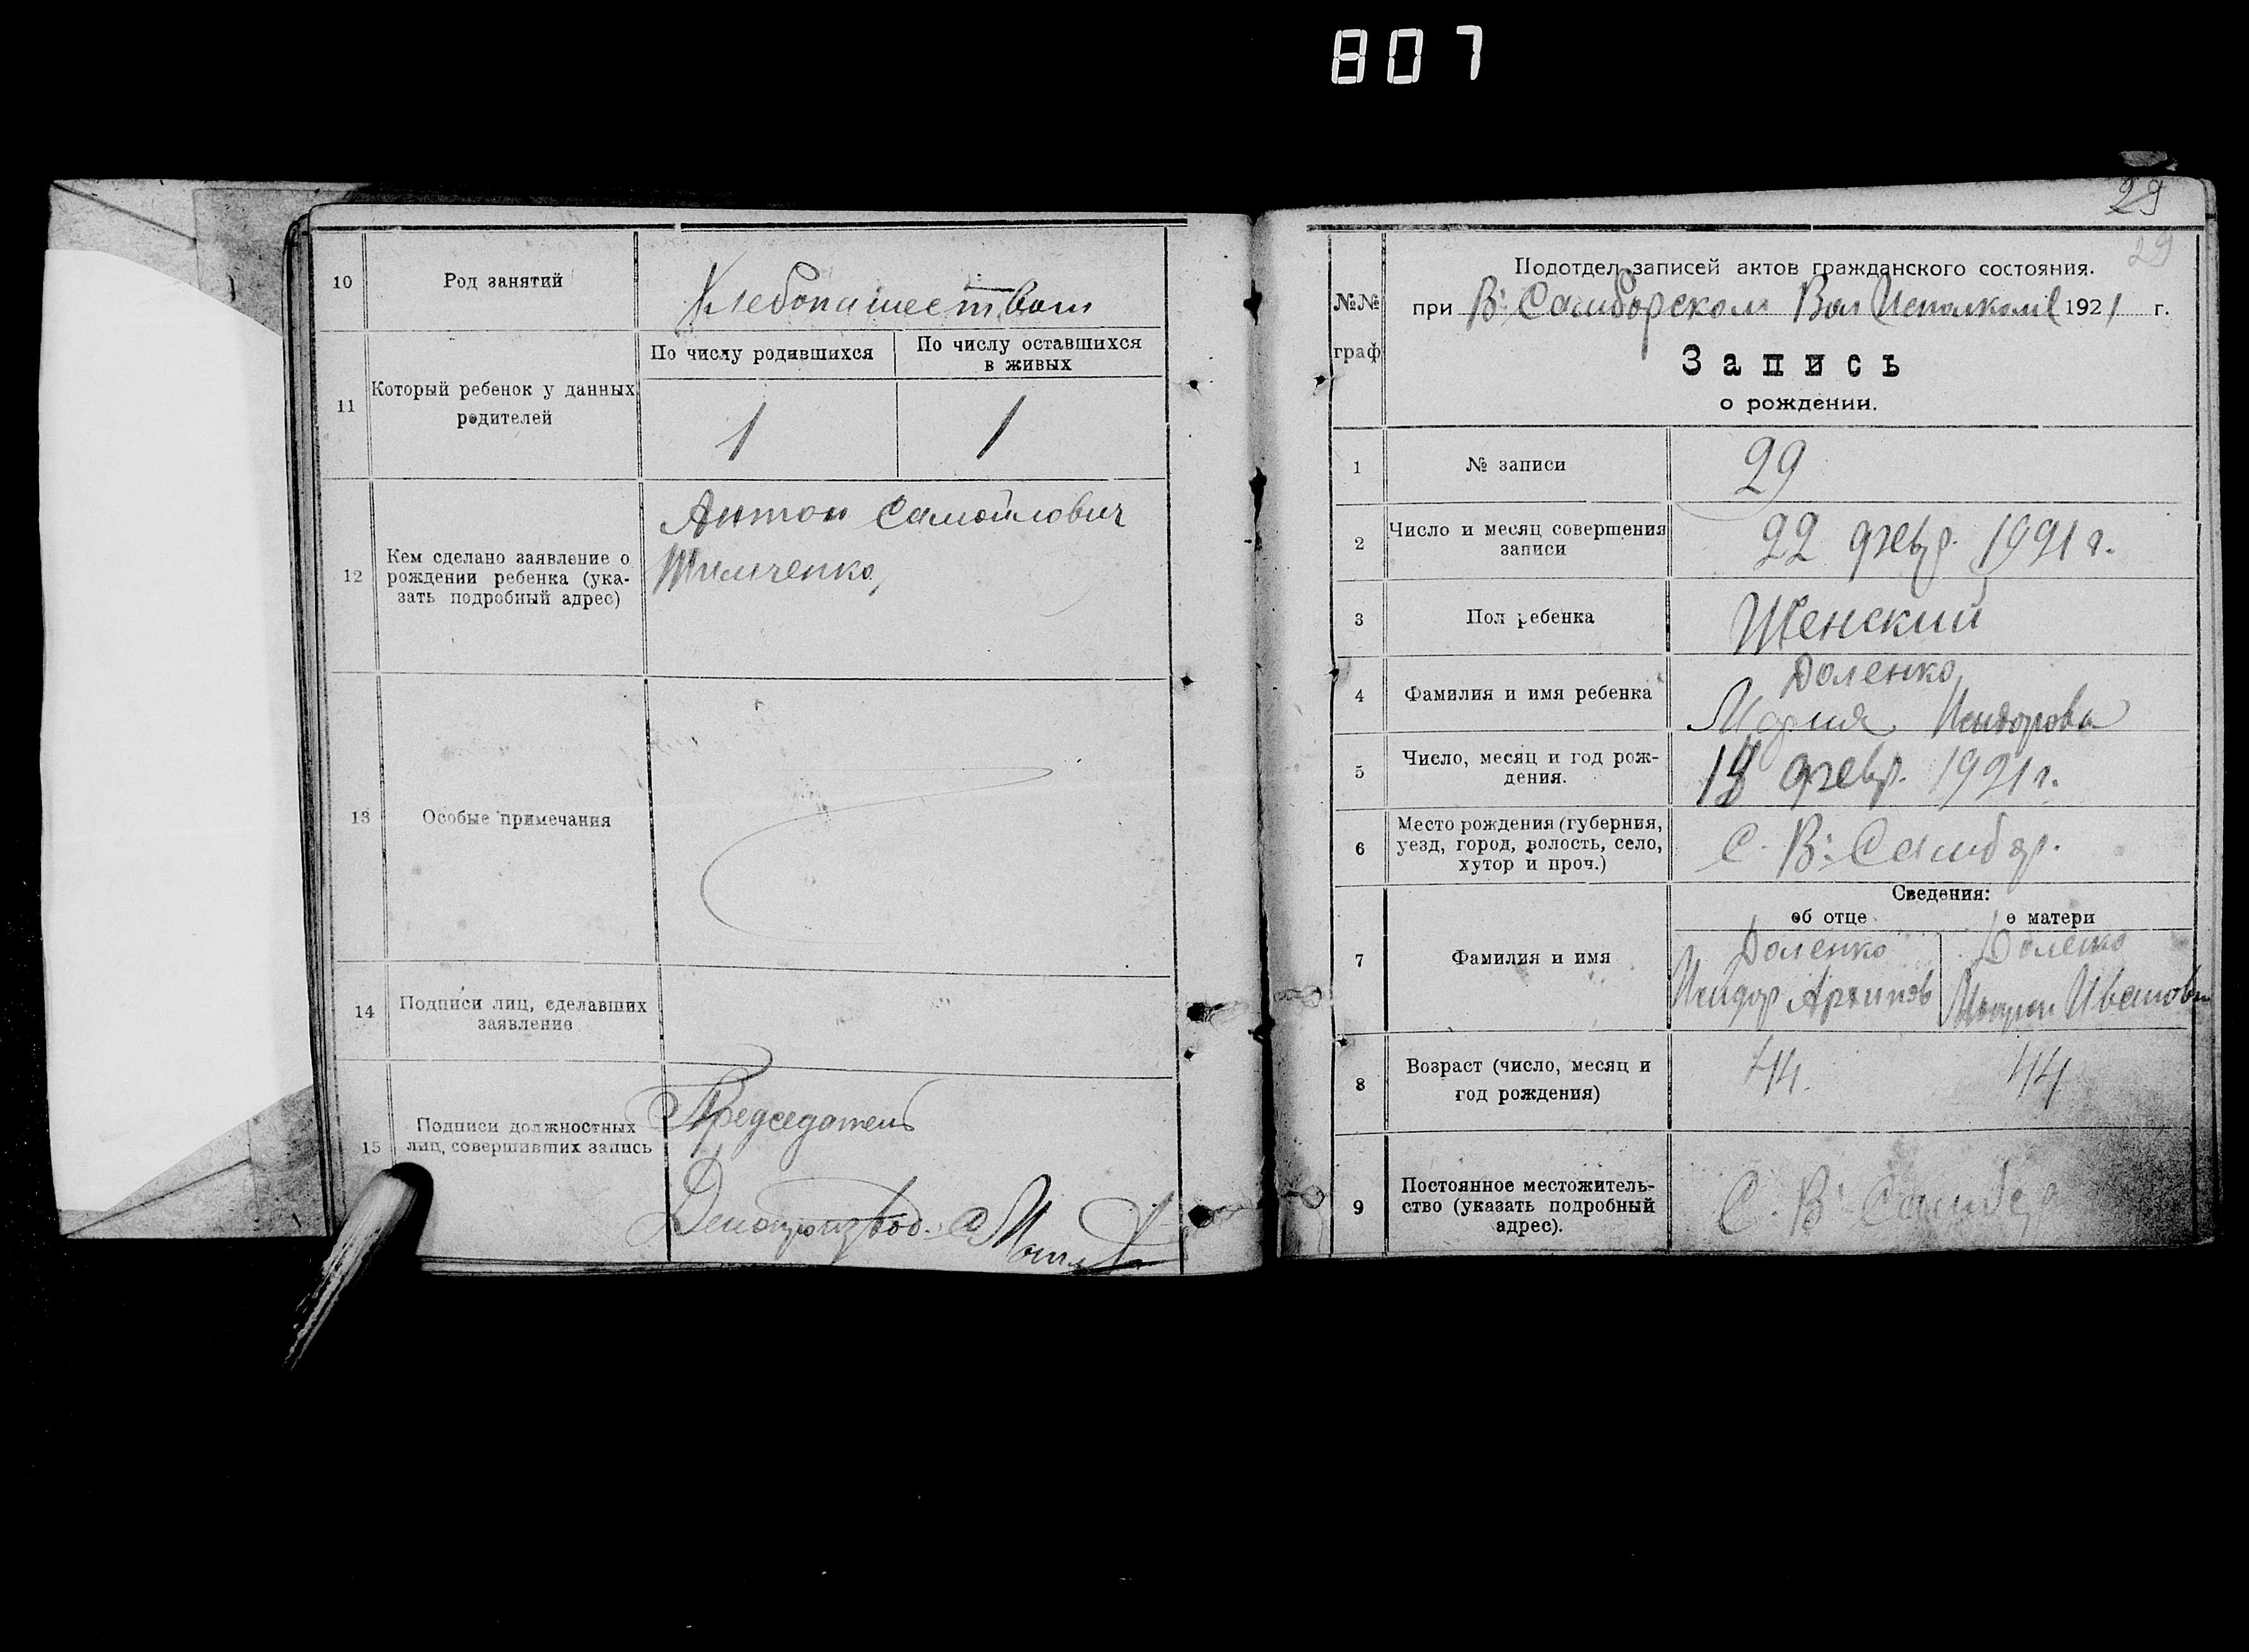 807
10
Род занятий
Хлебопашеством
11
Который ребенок у данных
родителей
По числу родившихся
По числу оставшихся
в живых
1
1
12
Кем сделано заявление о
рождении ребенка (ука-
зать подробный адрес)
Антон Самойлович
13
Особые примечания
14
Подписи лиц, сделавших
заявление
15
Подписи должностных
лиц, совершивших запись
Председатель
Делопроизвод.
29
29
№№
граф
Подотдел записей актов гражданского состояния.
при В. Самборском Вол Исполкоме 1921 г.
Запись
о рождении.
1
№ записи
29
2
Число и месяц совершения
записи
22 февр. 1921 г.
3
Пол ребенка
Женский
4
Фамилия и имя ребенка
Доленко
Мария Исидорова
5
Число, месяц и год рож-
дения.
февр. 1921 г.
6
Место рождения (губерния,
уезд, город, волость, село,
хутор и проч.)
С. В. Самбор.
Сведения:
об отце
о матери
7
Фамилия и имя
Доленко
Исидор Архипов
Доленко
Иванова
8
Возраст (число, месяц и
год рождения)
44.
44
9
Постоянное местожитель-
ство (указать подробный
адрес).
С. В. Самбор